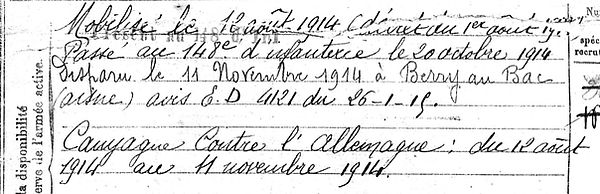 Mobilisé le 12 août 1914 (décret du 1er août 19
Présent au
Passé au 148e d'infanterie le 20 octobre 1914
disparu le 11 Novembre 1914 à Berry au Bac
(aisne) avis E.D 4121 du 26-1-15.
Campagne contre l'allemagne : du 12 août
1914 au 11 novembre 1914.
la disponibilité
erve de l'armée active.
Num
spéc
recrut